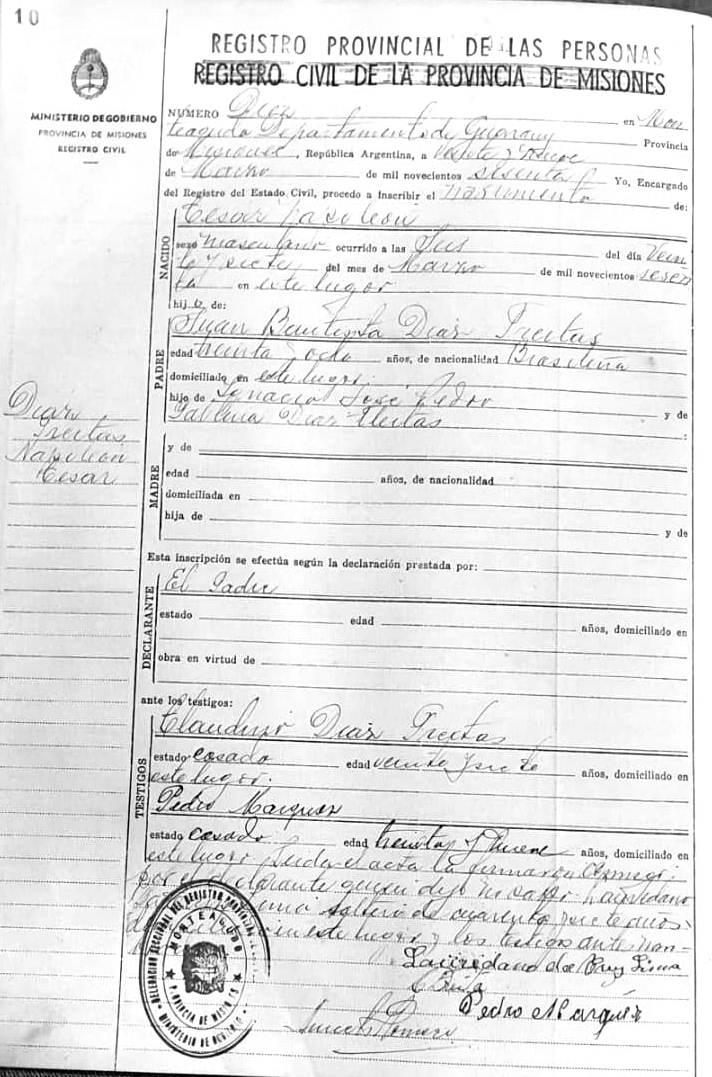 10
MINISTERIO DE GOBIERNO
PROVINCIA DE MISIONES
REGISTRO CIVIL
REGISTRO PROVINCIAL DE LAS PERSONAS
REGISTRO CIVIL DE LA PROVINCIA DE MISIONES
NUMERO Diez en Mon
teagudo Departamento de Guarany Provincia
de Misiones, República Argentina, a veinte y nueve
de Marzo de mil novecientos sesenta Yo, Encargado
del Registro del Estado Civil, procedo a inscribir el nacimiento de:
NACIDO
Cesar Napoleon
sexo masculino ocurrido a las Seis del día Vein
te y siete del mes de Marzo de mil novecientos sesen
ta en este lugar
hijo de:
PADRE
Juan Bautista Diaz Freitas
edad treinta y ocho años, de nacionalidad Brasileña
domiciliado en este lugar;
hijo de Ignacio José Pedro y de
Diaz Fleitas :
Diaz
Freitas
Napoleon
Cesar
MADRE
y de
edad años, de nacionalidad
domiciliada en
hija de
y de
Esta inscripción se efectúa según la declaración prestada por:
DECLARANTE
El Padre
estado edad años, domiciliado en
obra en virtud de
ante los testigos:
TESTIGOS
Claudino Diaz Freitas
estado casado edad veinte y siete años, domiciliado en
este lugar.
Pedro Marquez
estado casado edad treinta y nueve años, domiciliado en
este lugar Leida el acta la firmaron conmigo
por el declarante quien dijo no saber Lauredano
soltero de cuarenta y siete años
en este lugar y los testigos ante nom-
Lauredano da Cruz Lima
Pedro Marquez
DELEGACION SECCIONAL DEL REGISTRO PROVINCIAL
MONTEAGUDO
PROVINCIA DE MISIONES
MINISTERIO DE GOBIERNO